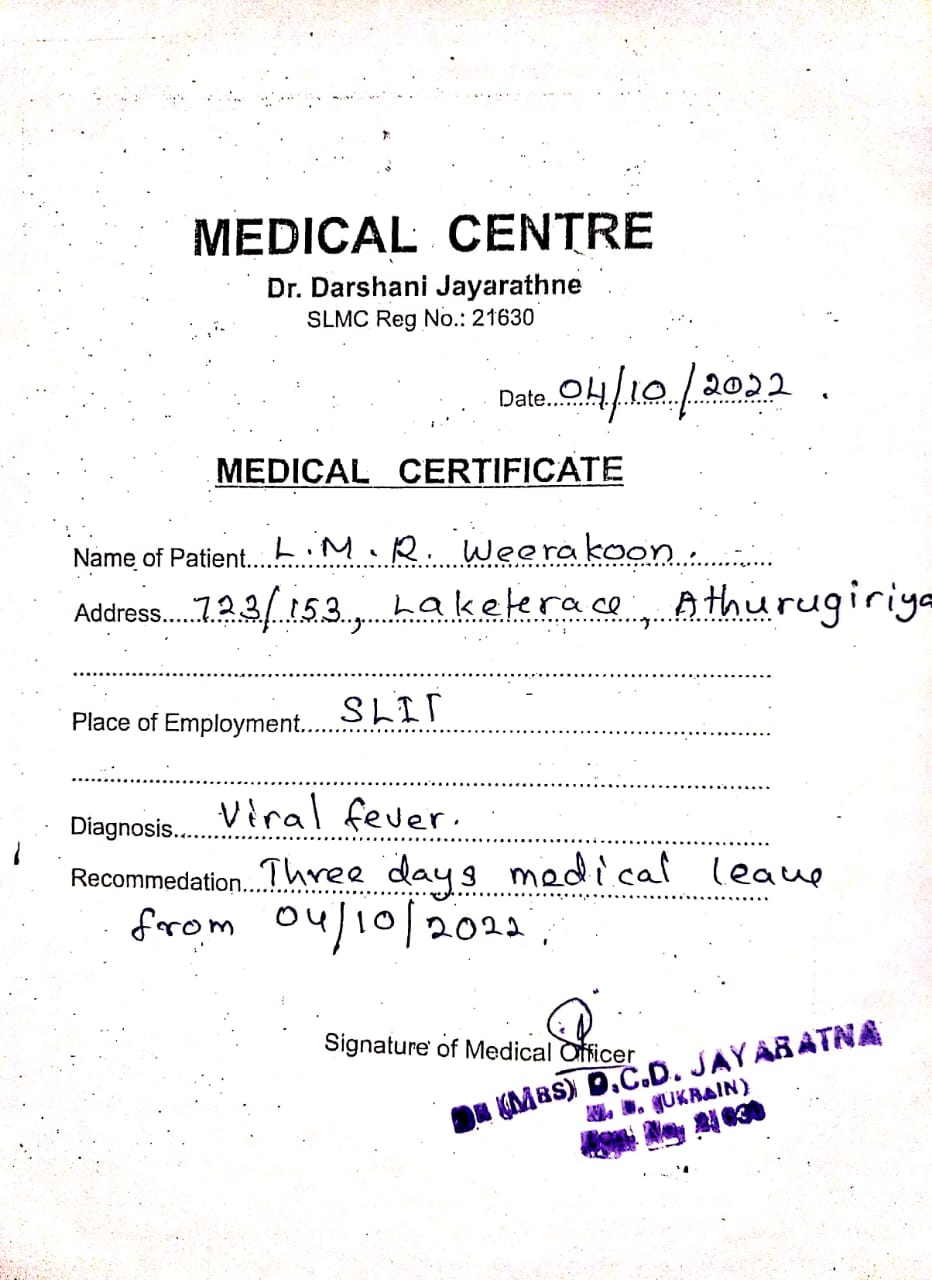 MEDICAL CENTRE
Dr. Darshani Jayarathne
SLMC Reg No.: 21630
Date 04/10/2022
MEDICAL CERTIFICATE
Name of Patient L.M.R. Weerakoon.
Address 723/153, Laketerace, Athurugiriya
Place of Employment SLIT
Diagnosis Viral fever.
Recommedation Three days medical leave
from 04/10/2022.
Signature of Medical Officer
DR (MRS) D.C.D. JAYARATNA
M. D. (UKRAIN)
Reg. No. 21630